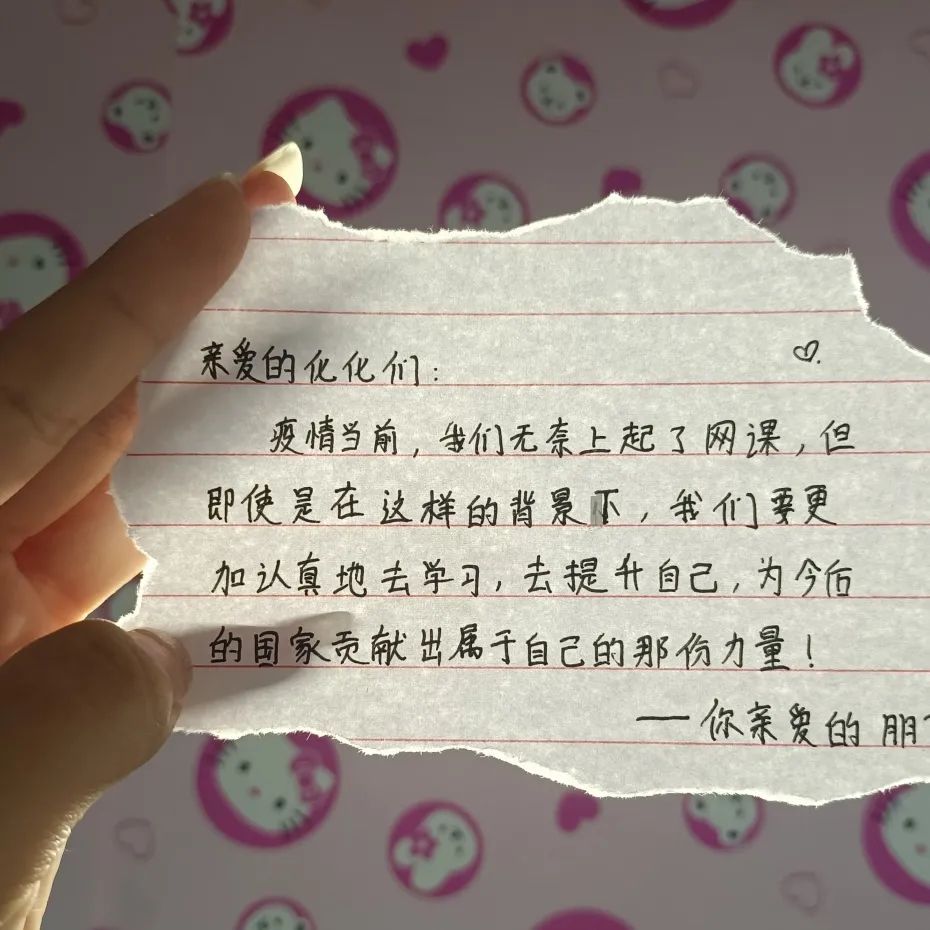 亲爱的化化们:
疫情当前,我们无奈上起了网课,但
即使是在这样的背景下,我们要更
加认真地去学习,去提升自己,为今后
的国家贡献出属于自己的那份力量!
——你亲爱的朋